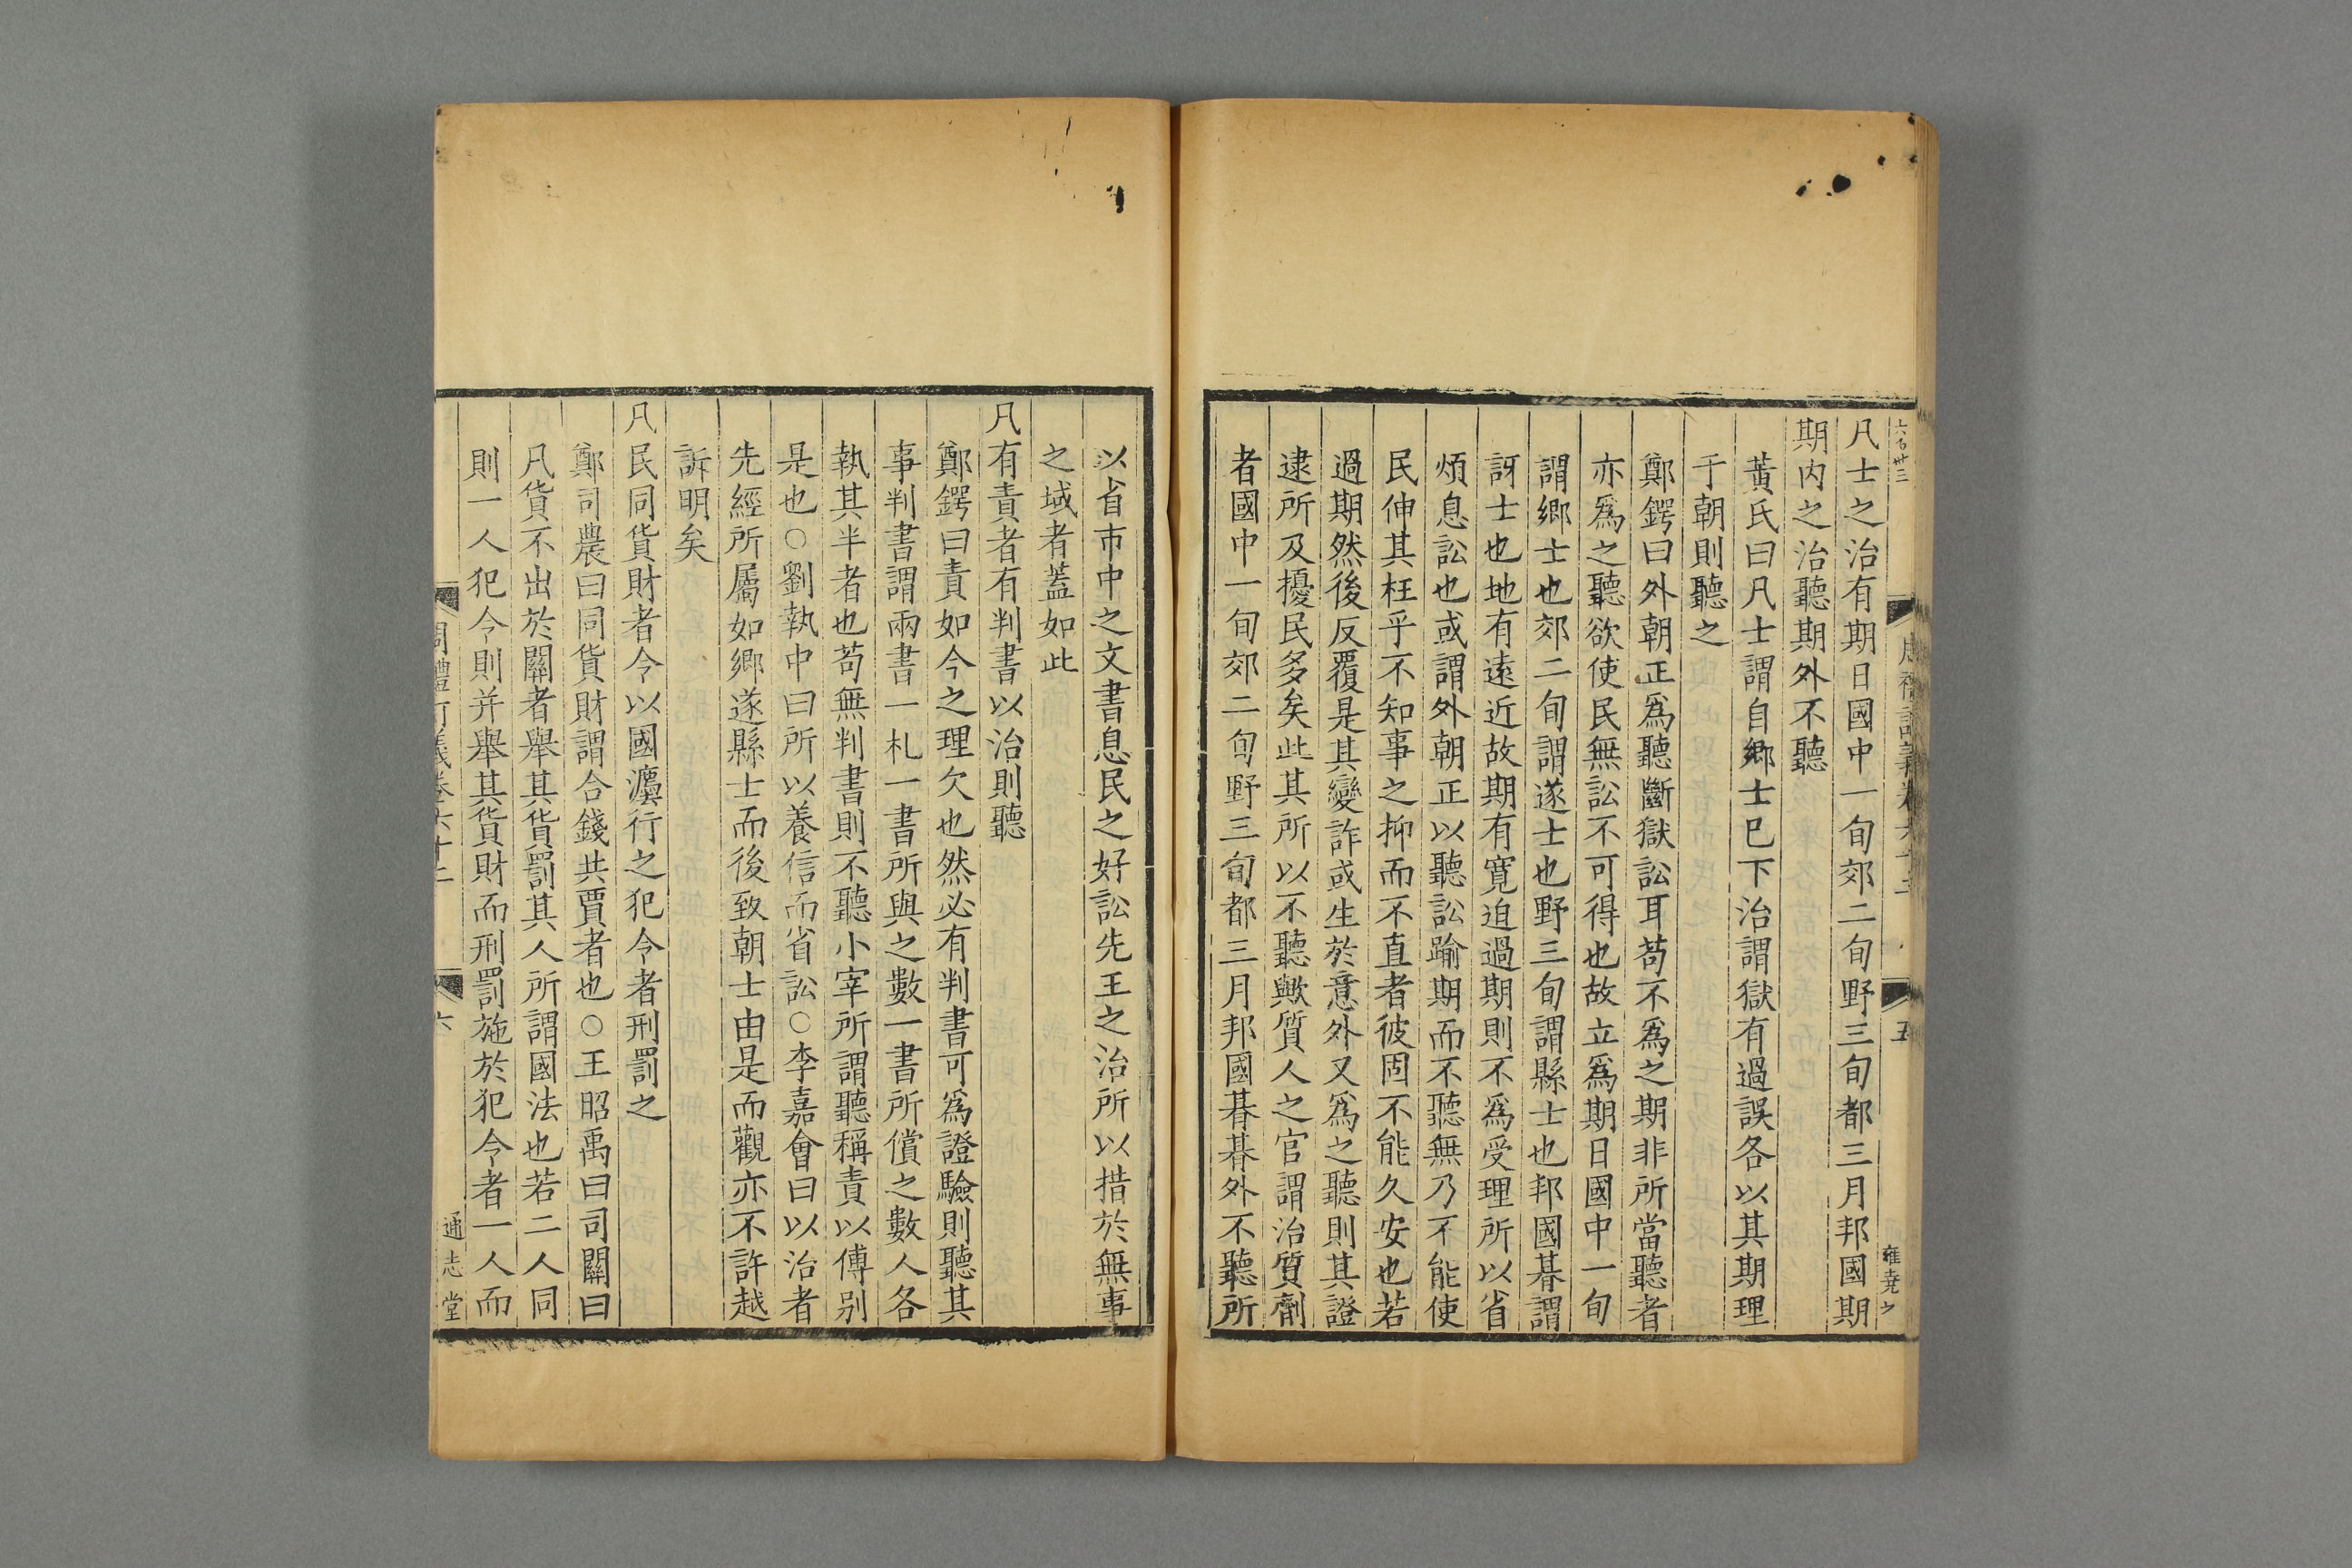 六百卅三
五
雍堯之
凡士之治有期日國中一旬郊二旬野三旬都三月邦國期
期内之治聽期外不聽
黃氏曰凡士謂自鄉士巳下治謂獄有過誤各以其期理
于朝則聽之
鄭鍔曰外朝正爲聽斷獄訟耳苟不爲之期非所當聽者
亦爲之聽欲使民無訟不可得也故立爲期日國中一旬
謂鄉士也郊二旬謂遂士也野三旬謂縣士也邦國朞謂
訝士也地有遠近故期有寬迫過期則不爲受理所以省
煩息訟也或謂外朝正以聽訟踰期而不聽無乃不能使
民伸其枉乎不知事之抑而不直者彼固不能久安也若
過期然後反覆是其變詐或生於意外又爲之聽則其證
逮所及擾民多矣此其所以不聽歟質人之官謂治質劑
者國中一旬郊二旬野三旬都三月邦國朞朞外不聽所
以省市中之文書息民之好訟先王之治所以措於無事
之域者蓋如此
凡有責者有判書以治則聽
鄭鍔曰責如今之理欠也然必有判書可爲證驗則聽其
事判書謂兩書一札一書所與之數一書所償之數人各
執其半者也苟無判書則不聽小宰所謂聽稱責以傅别
是也○劉執中曰所以養信而省訟○李嘉會曰以治者
先經所屬如鄉遂縣士而後致朝士由是而觀亦不許越
訴明矣
凡民同貨財者令以國灋行之犯令者刑罰之
鄭司農曰同貨財謂合錢共賈者也○王昭禹曰司關曰
凡貨不出於關者舉其貨罰其人所謂國法也若二人同
則一人犯令則并舉其貨財而刑罰施於犯令者一人而
六
通志堂